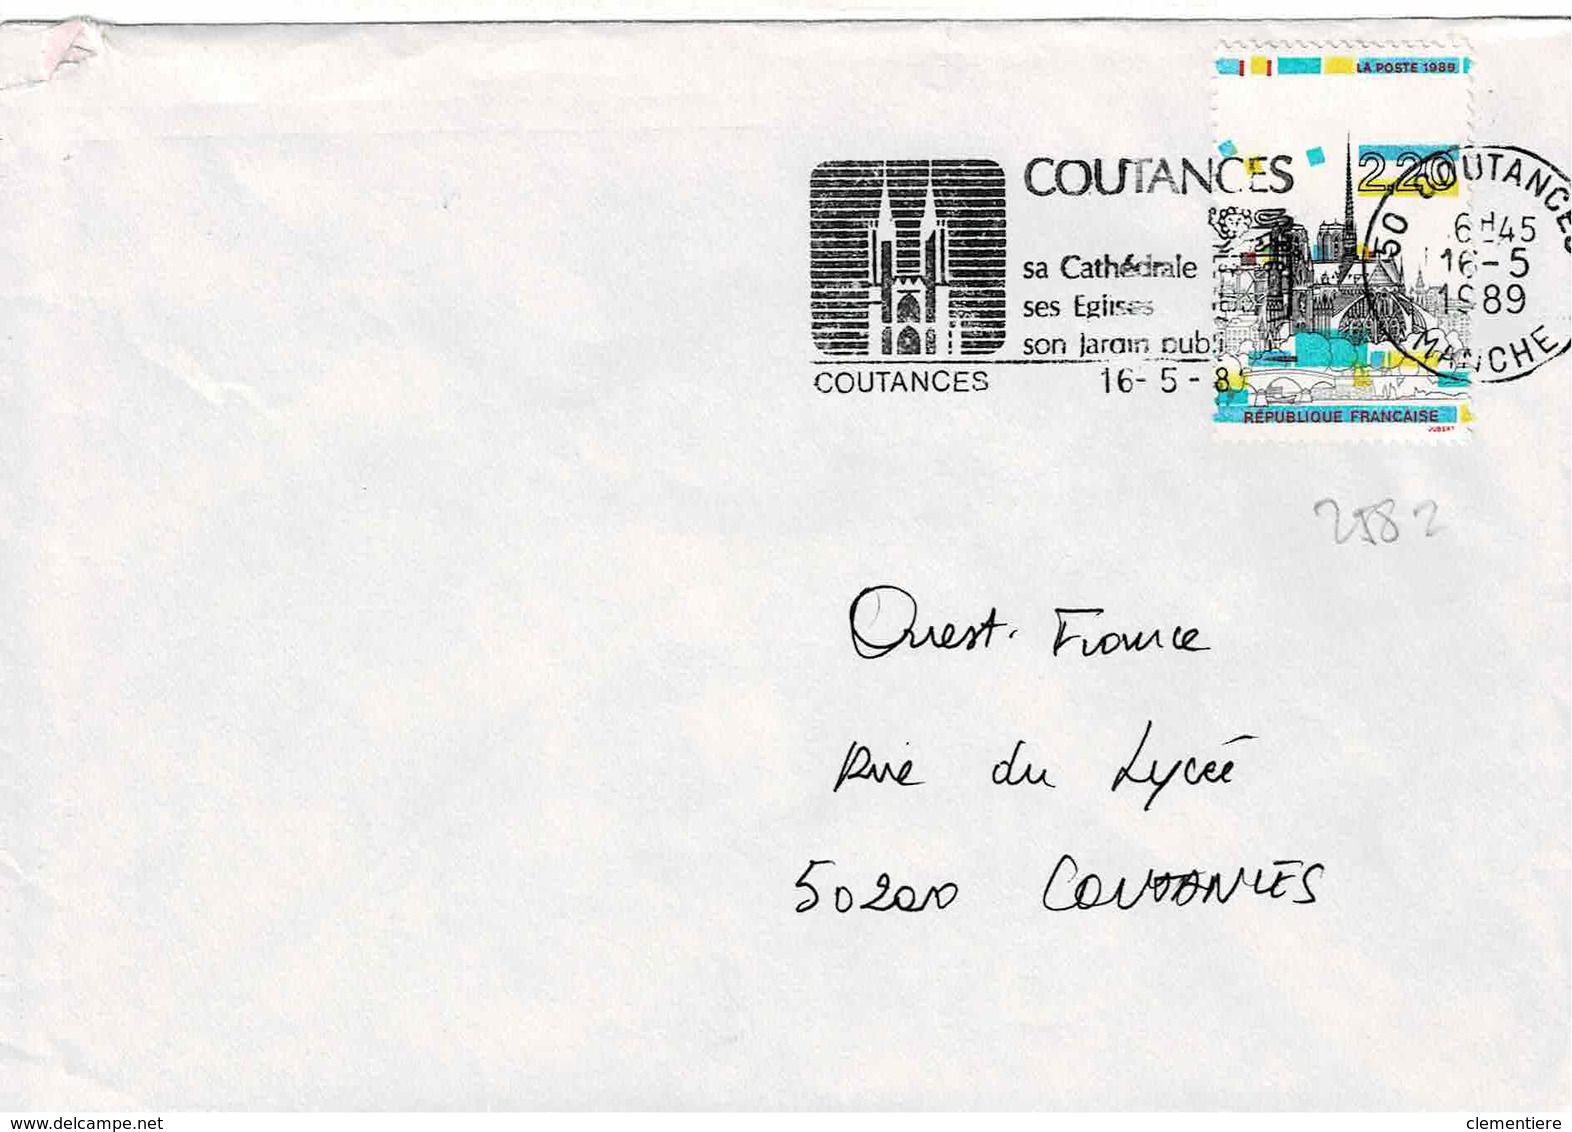 LA POSTE 1989
2,20
COUTANCES
sa Cathédrale
ses Eglises
son Jardin publi
COUTANCES
16-5-8
50 COUTANCES
6H45
16-5
1989
MANCHE
RÉPUBLIQUE FRANÇAISE
JUBERT
2582
Ouest-France
Rue du Lycée
50200 COUTANCES
www.delcampe.net
clementiere